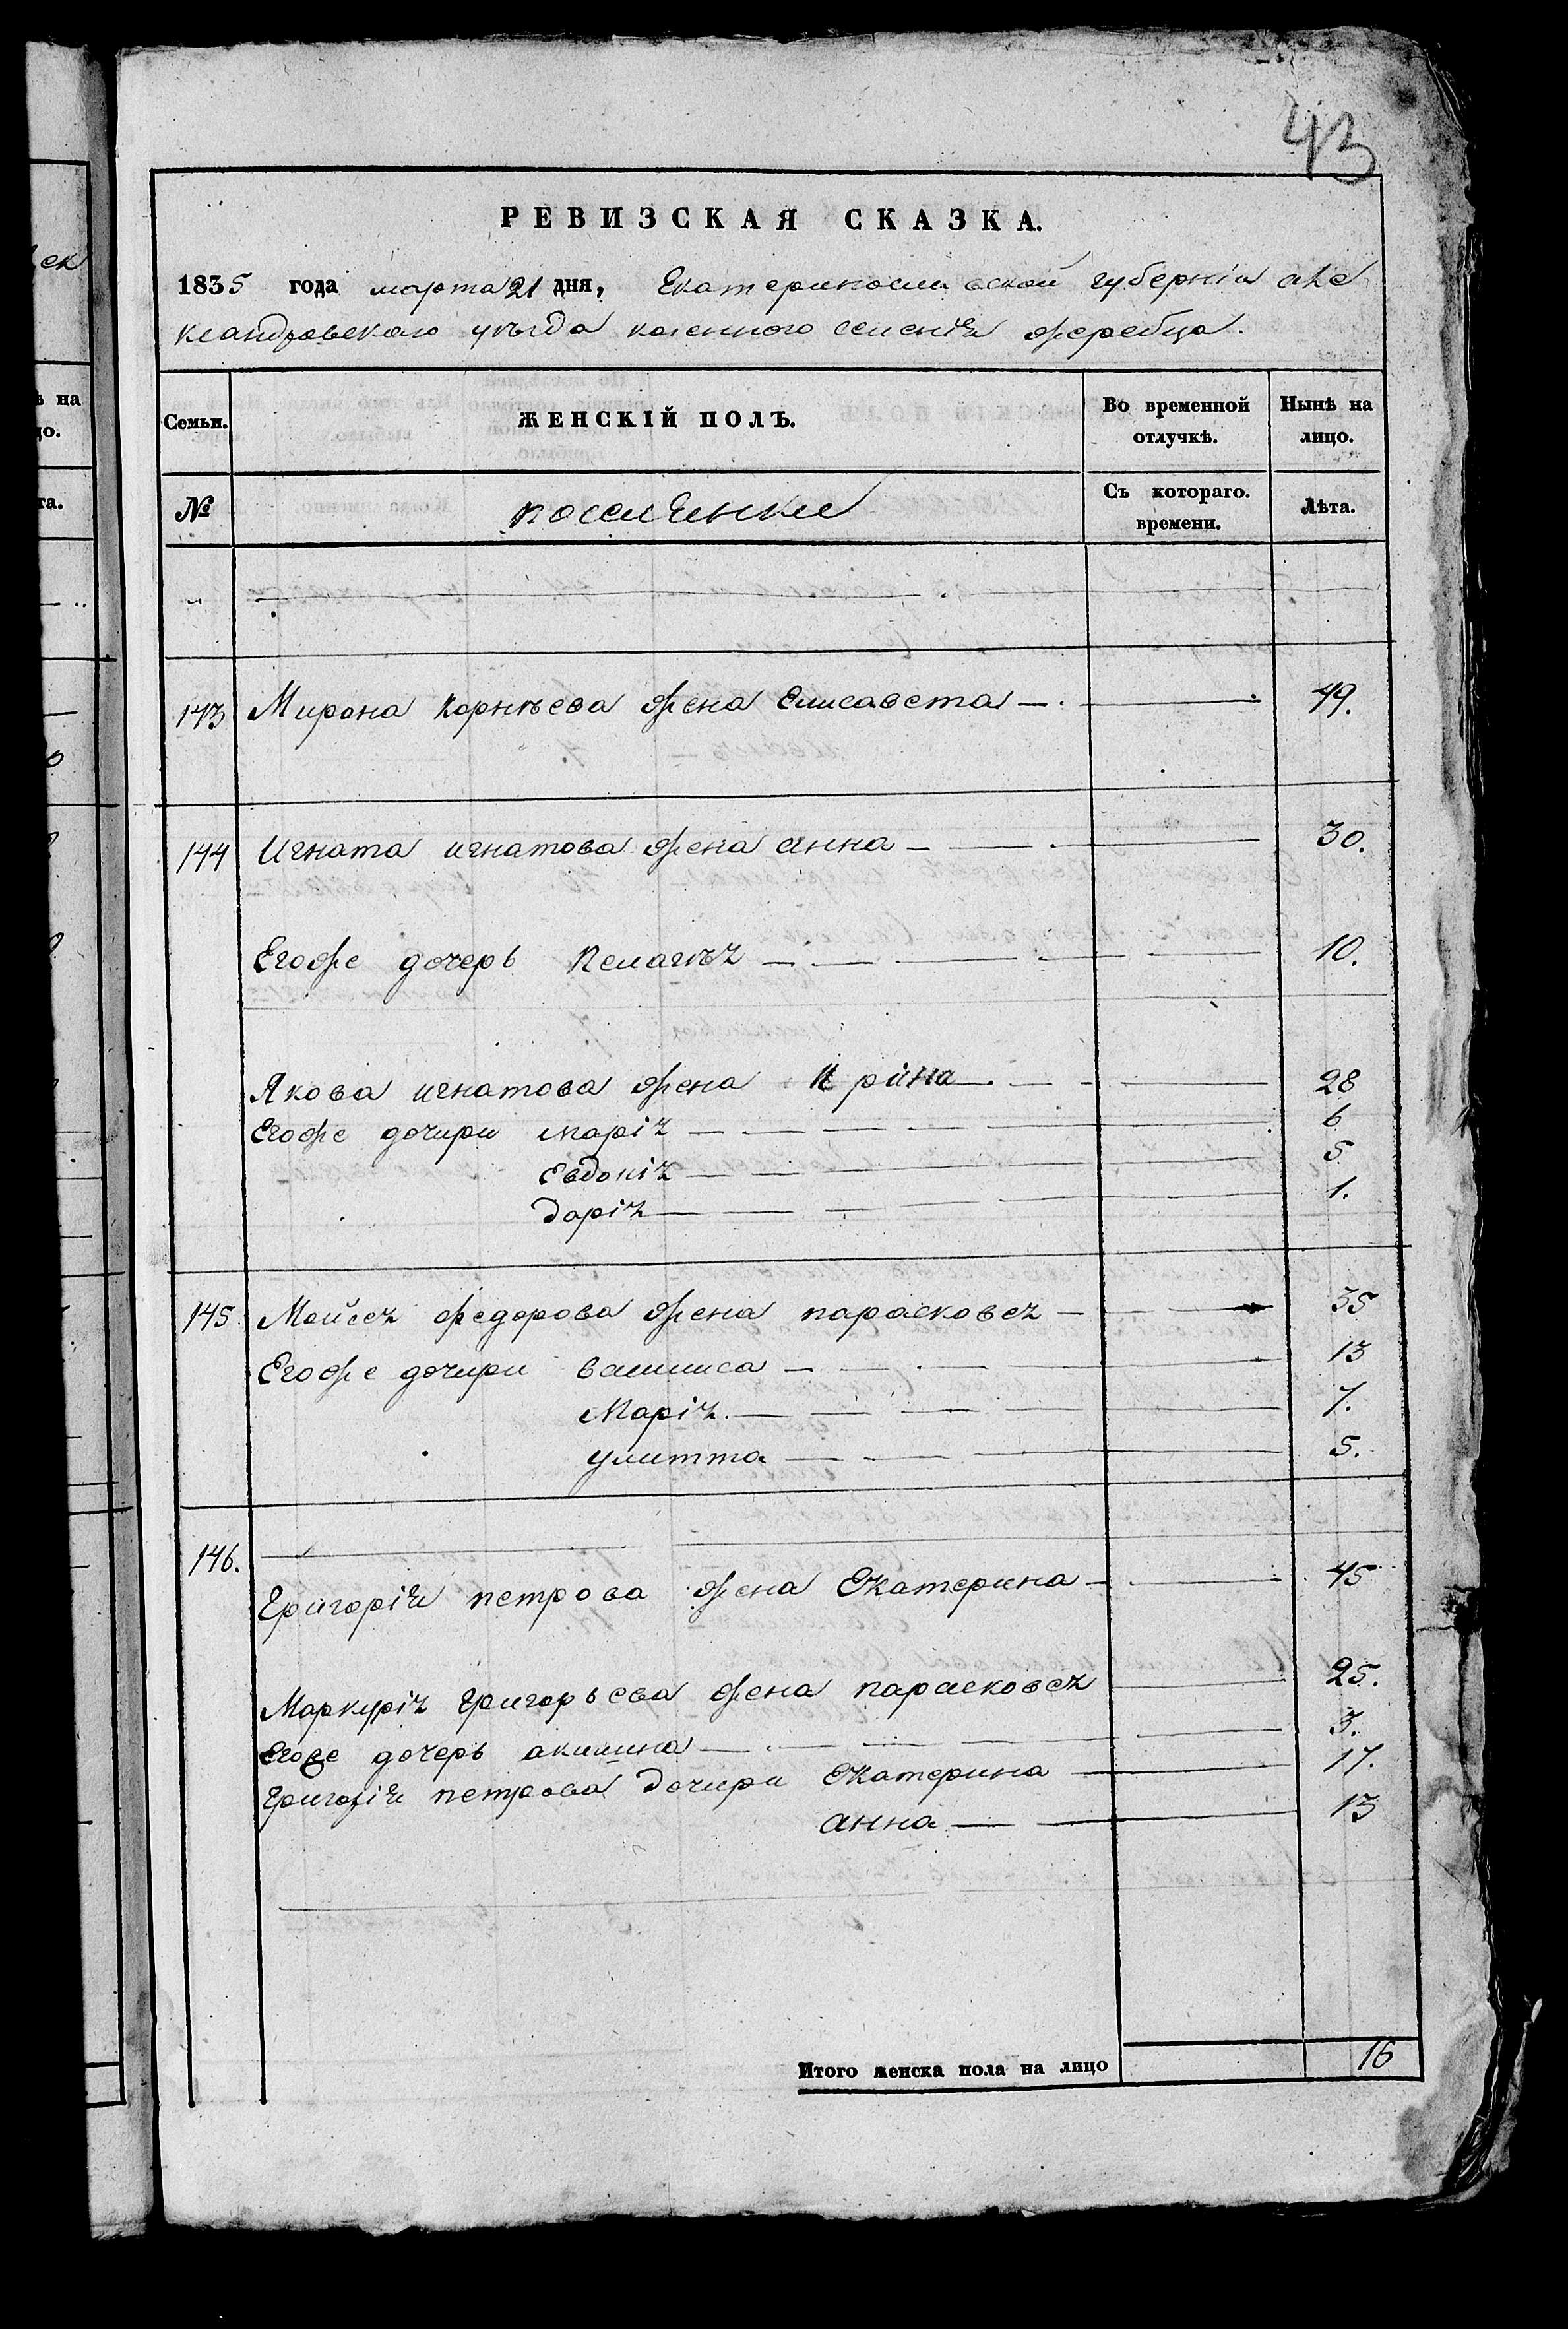 43
РЕВИЗСКАЯ СКАЗКА.
1835 года марта 21 дня, Екатеринославской губерніи але
ксандровскаго уѣзда казенного селенія жеребца.
Семьи. ЖЕНСКІЙ ПОЛЪ. Во временной отлучкѣ. Нынѣ на лицо.
№ поселянки Съ котораго. времени. Лѣта.
143 Мирона Корнѣева жена Елисавета 49.
144 Игната игнатова жена анна 30.
Егоже дочерь Пелагѣя 10.
Якова игнатова жена Ирина 28
Егоже дочири маріѧ 6
Евдокіѧ 5
Даріѧ 1.
145 Мойсеѧ федорова жена парасковеѧ 35
Егоже дочири василиса 13
Маріѧ 7.
улитта 5.
146.
Григоріѧ петрова жена Екатерина 45
Маркуріѧ Григорьева жена парасковеѧ 25.
Егоже дочерь акилина 3.
Григоріѧ петрова дочири Екатерина 17.
анна 13
Итого женска пола на лицо 16